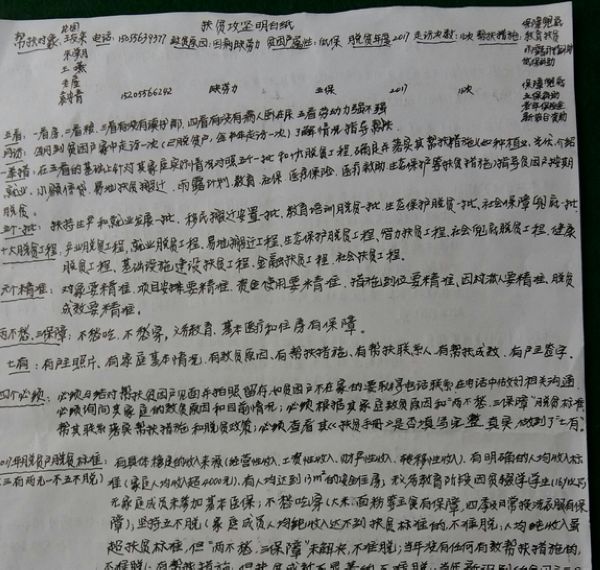 扶贫攻坚明白纸
帮扶对象 电话:15055639377 致贫原因:因病缺劳力 贫困户属性:低保 脱贫年度2017 走访次数:10次 帮扶措施:
保障兜底
教育扶贫
低保补助
15205566242 缺劳力 五保 2017 10次
保障兜底
五保补助
五看:一看房、二看粮、三看有没有读书郎、四看有没有病人卧在床、五看劳动力强不强
月访:每月到贫困户家中走访一次(已脱贫户,每半年走访一次)了解情况
一策措:在五看的基础上针对其家庭实际情况对照五个一批和十大脱贫工程,确良并落实其帮扶措施(如种植业、光伏、介绍
就业、小额信贷、易地扶贫搬迁、雨露计划、教育、社保、医疗保险、医疗救助、生态保护等扶贫措施)指导贫困户按期
脱贫。
五个一批:扶持生产和就业发展一批、移民搬迁安置一批、教育培训脱贫一批、生态保护脱贫一批、社会保障兜底一批
十大脱贫工程:产业脱贫工程、就业脱贫工程、易地搬迁工程、生态保护脱贫工程、智力扶贫工程、社会兜底脱贫工程、健康
脱贫工程、基础设施建设扶贫工程、金融扶贫工程、社会扶贫工程。
六个精准:对象要精准、项目安排要精准、资金使用要精准、措施到位要精准、因村派人要精准、脱贫
成效要精准。
两不愁、三保障:不愁吃、不愁穿,义务教育、基本医疗和住房有保障。
七有:有户主照片、有家庭基本情况、有致贫原因、有帮扶措施、有帮扶联系人、有帮扶成效、有户主签字。
四个必须:必须与结对帮扶贫困户见面并拍照留存,如贫困户不在家的要取得电话联系在电话中做好相关沟通
必须询问其家庭的致贫原因和目前情况;必须根据其家庭致贫原因和“两不愁、三保障”脱贫标准
帮其联系落实帮扶措施和脱贫政策;必须查看其《扶贫手册》是否填写完整、真实,做到了“七有”。
2017年脱贫户脱贫标准:有具体稳定的收入来源(经营性收入、工资性收入、财产性收入、转移性收入)、有明确的人均收入标
(三有两无一不五不脱) 准(家庭人均收入超4000元)、有人均达到13m²的安全住房;义务教育阶段无因贫辍学学生(16岁以下)
无家庭成员未参加基本医保;不愁吃穿(大米、面粉等主食有保障,四季及日常换洗衣服有保
障);坚持五不脱(家庭成员人均纯收入达不到扶贫标准的,不准脱;人均纯收入虽
超扶贫标准,但“两不愁、三保障”未解决,不准脱;当年没有任何有效帮扶措施的,
不准脱;有帮扶措施,但扶贫成效不显著的,不准脱;当年新识别的贫困户